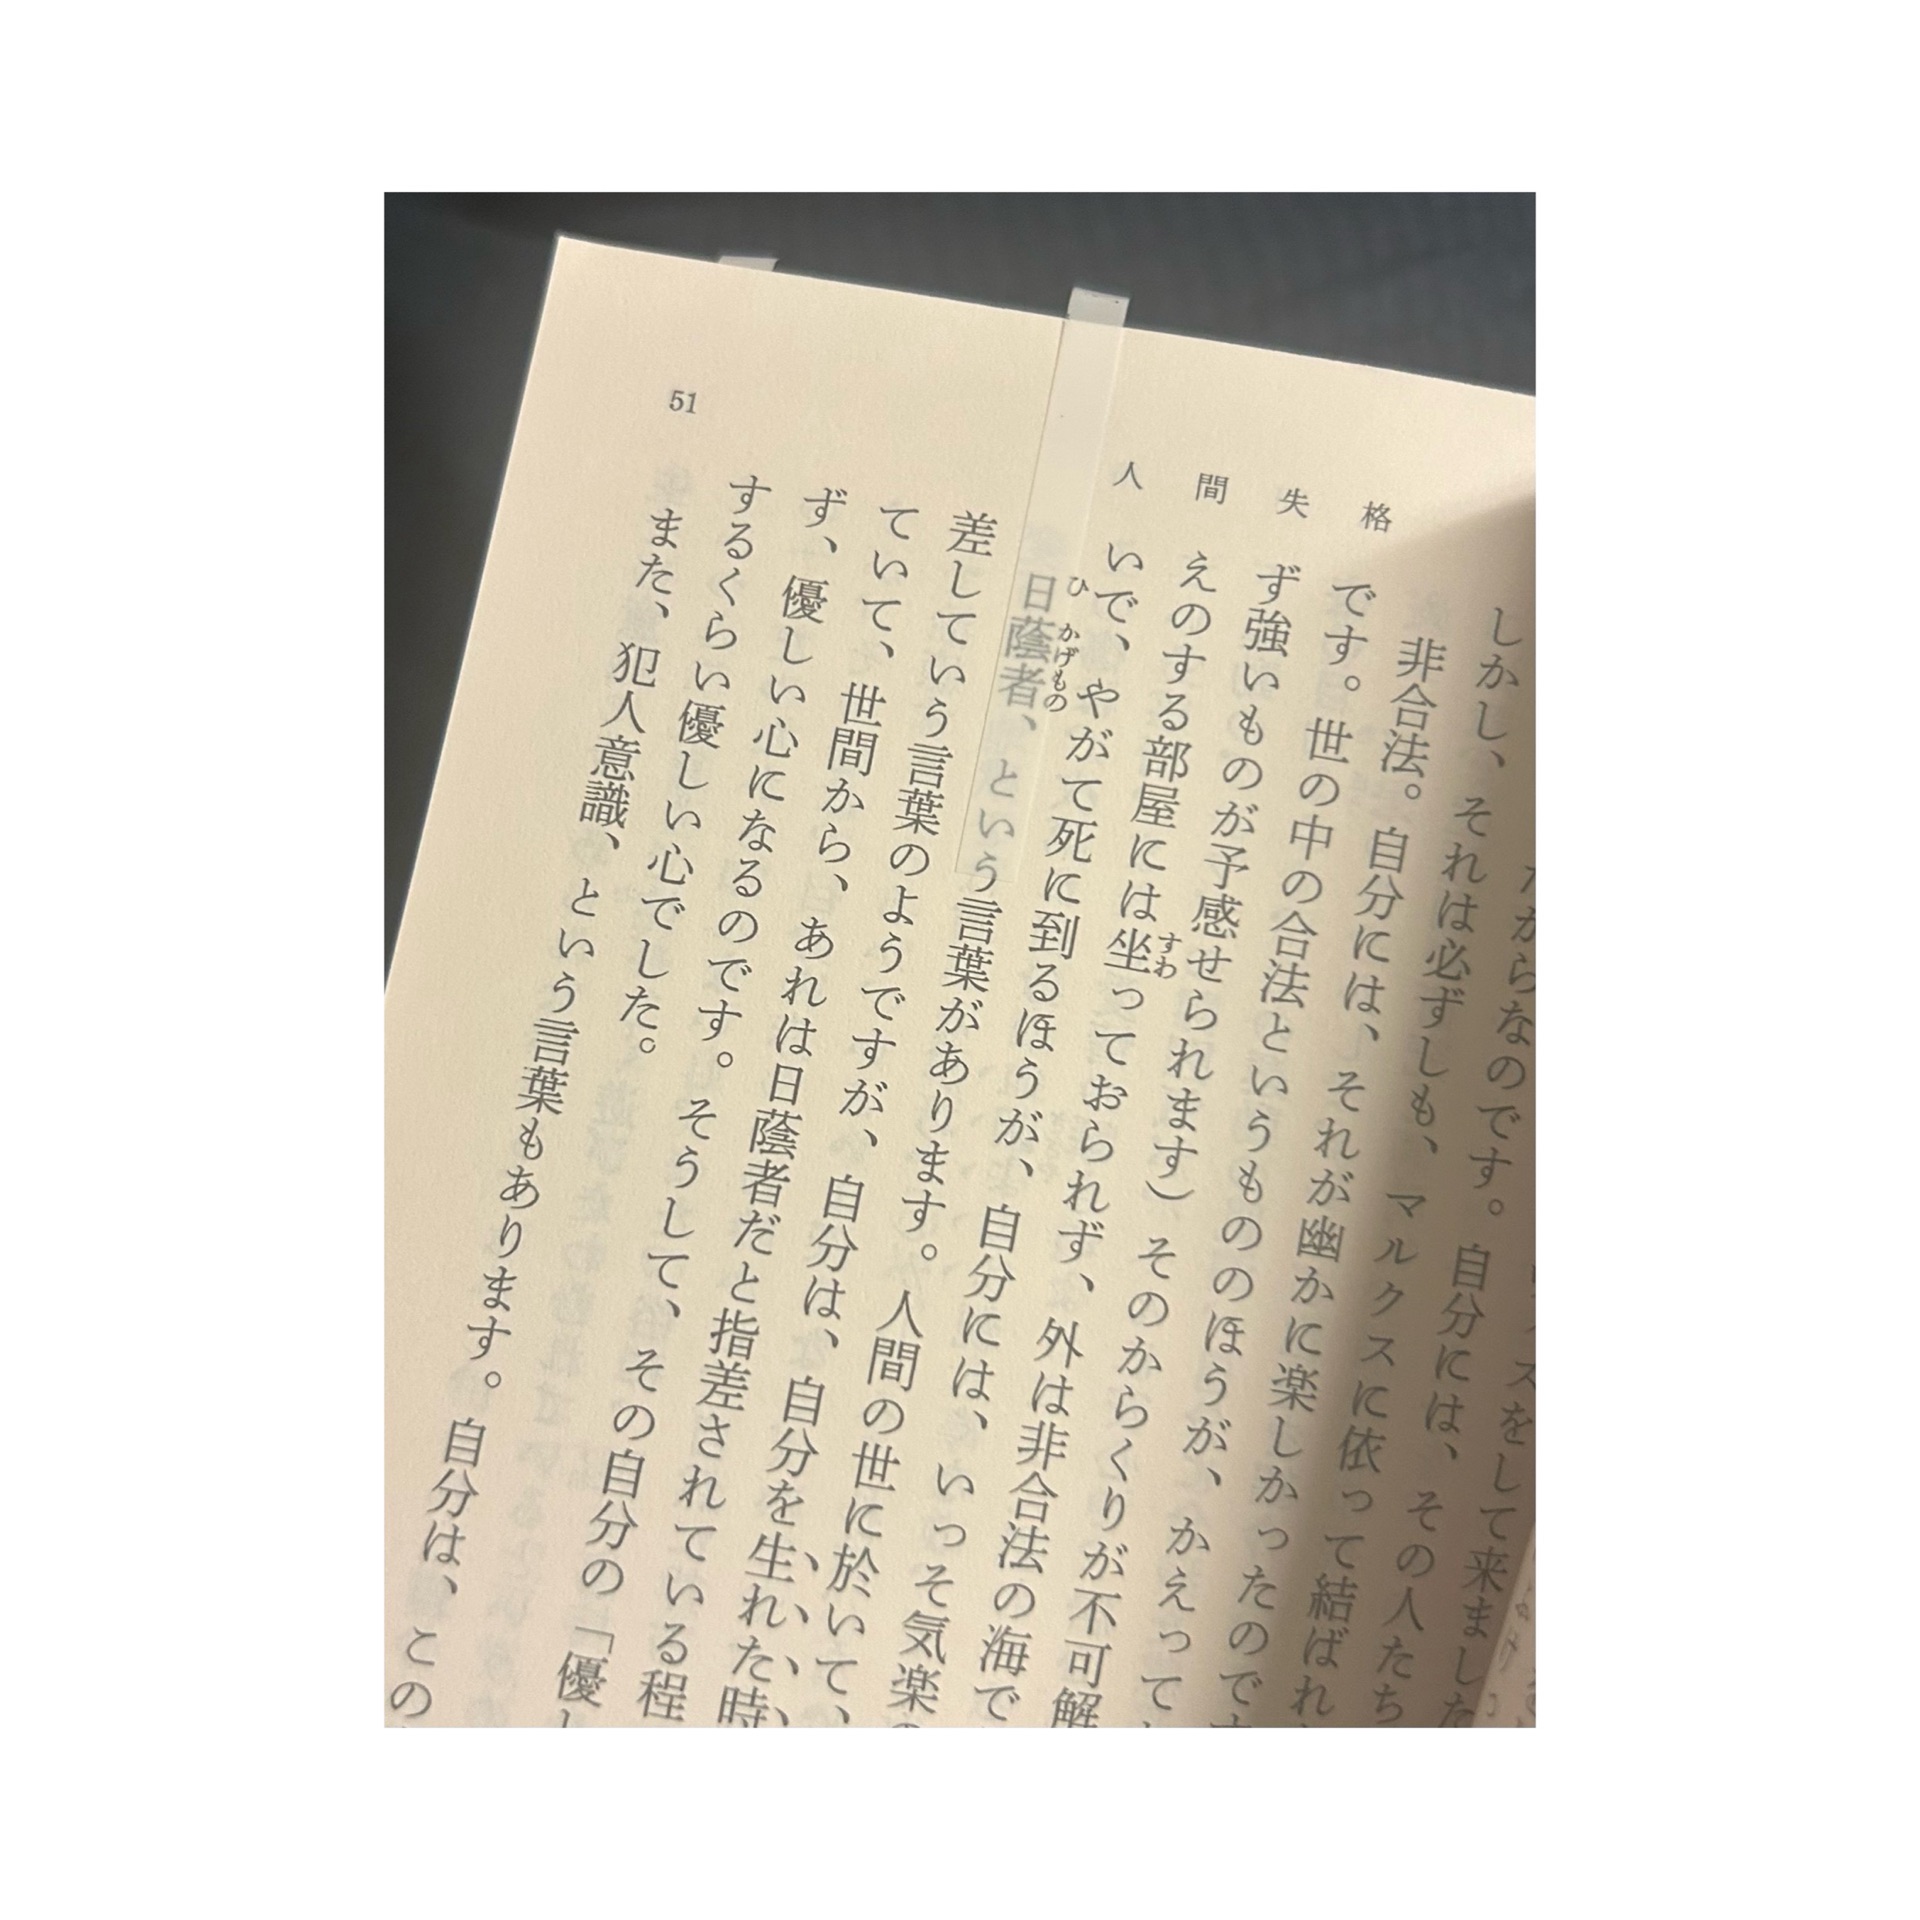 51
人間失格
しかし、それは必ずしも、マルクスに依って結ばれ
非合法。自分には、それが幽かに楽しかったのです
です。世の中の合法というもののほうが、かえって
ず強いものが予感せられます)そのからくりが不可解
えのする部屋には坐っておられず、外は非合法の海で
いで、やがて死に到るほうが、自分には、いっそ気楽
日蔭者、という言葉があります。人間の世に於いて、
差していう言葉のようですが、自分は、自分を生れた時
ていて、世間から、あれは日蔭者だと指差されている程
ず、優しい心になるのです。そうして、その自分の「優し
するくらい優しい心でした。
また、犯人意識、という言葉もあります。自分は、この